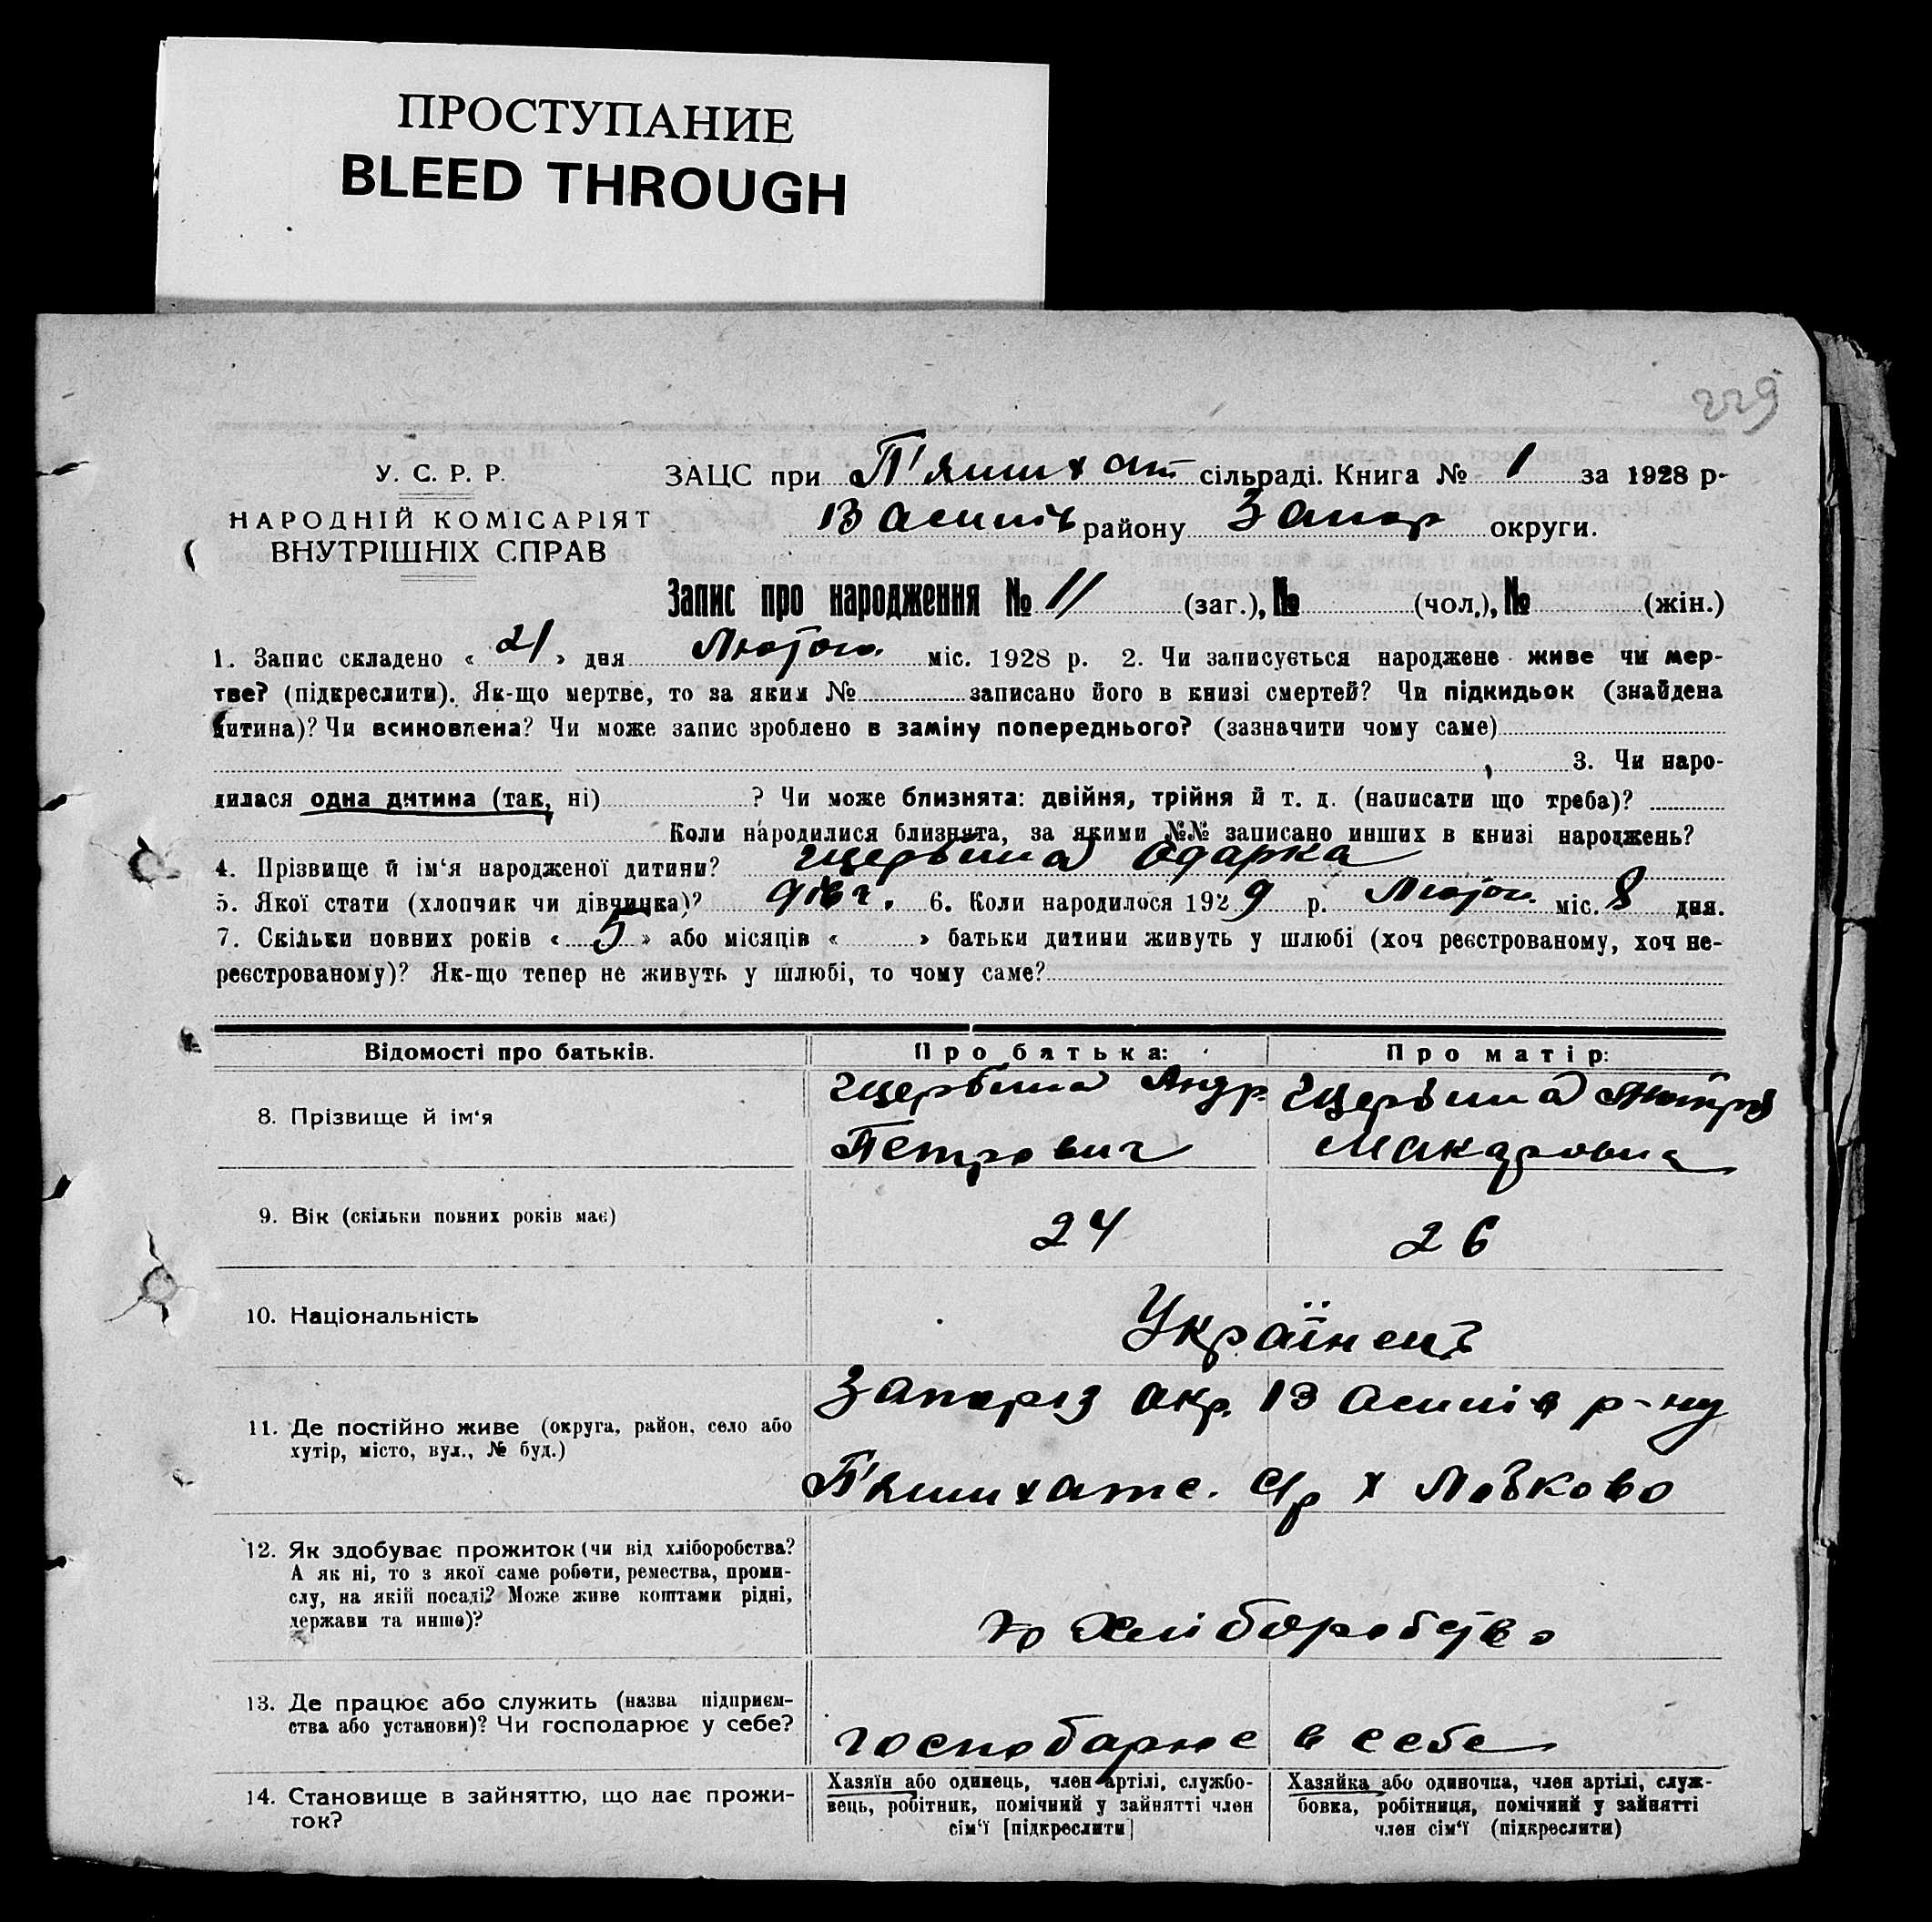 ПРОСТУПАНИЕ
BLEED THROUGH
229
У. С. Р. Р.
НАРОДНІЙ КОМІСАРІЯТ
ВНУТРІШНІХ СПРАВ
ЗАЦС при П'яти х ат сільраді. Книга № 1 за 1928 р-
Василів району Запор округи.
Запис про народження № 11 (заг.), № (чол.), № (жін.)
1. Запис складено « 21 » дня Лютого міс. 1928 р. 2. Чи записується народжене живе чи мер-
тве? (підкреслити). Як-що мертве, то за яким № записано його в книзі смертей? Чи підкидьок (знайдена
дитина)? Чи всиновлена? Чи може запис зроблено в заміну попереднього? (зазначити чому саме)
3. Чи наро-
дилася одна дитина (так, ні) ? Чи може близнята: двійня, трійня й т. д. (написати що треба)?
Коли народилися близнята, за якими №№ записано инших в книзі народжень?
4. Прізвище й ім‘я народженої дитини? Щербина Одарка
5. Якої стати (хлопчик чи дівчинка)? дівч. 6. Коли народилося 1929 р. Лютого міс. 8 дня.
7. Скільки повних років « 5 » або місяців « » батьки дитини живуть у шлюбі (хоч реєстрованому, хоч не-
реєстрованому)? Як-що тепер не живуть у шлюбі, то чому саме?
Відомості про батьків. Про батька: Про матір:
8. Прізвище й ім‘я Щербина Андр. Щербина
Петрович Макаровна
9. Вік (скільки повних років має) 24 26
10. Національність Українець
11. Де постійно живе (округа, район, село або
хутір, місто, вул., № буд.)
Запоріз окр. Василів р-ну
П'ятихатс. с/р х Любково
12. Як здобуває прожиток (чи від хліборобства?
А як ні, то з якої саме роботи, ремества, проми-
слу, на якій посаді? Може живе коштами рідні,
держави та инше)?
Хліборобство
13. Де працює або служить (назва підприєм-
ства або установи)? Чи господарює у себе?
господарює в себе
14. Становище в зайняттю, що дає прожи-
ток?
Хазяїн або одинець, член артілі, службо-
вець, робітник, помічний у зайнятті член
сім‘ї [підкреслити]
Хазяйка або одиночка, член артілі, служ-
бовка, робітниця, помічний у зайнятті
член сім‘ї (підкреслити)